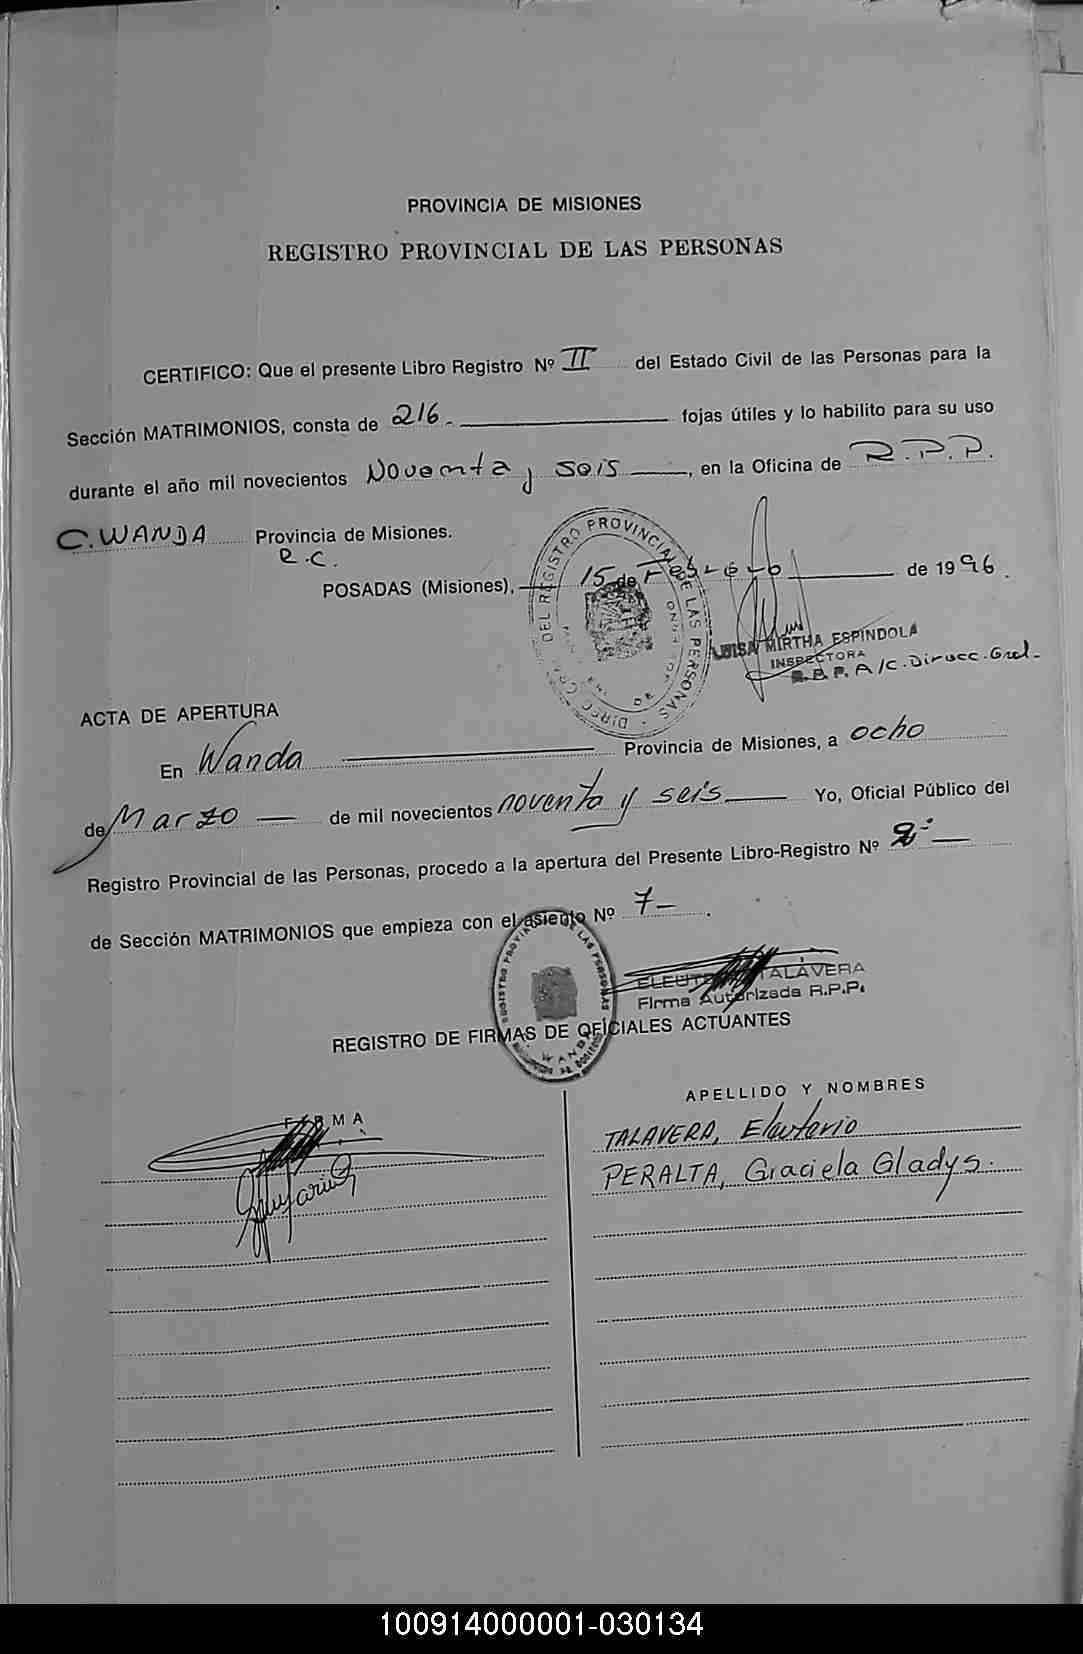 PROVINCIA DE MISIONES
REGISTRO PROVINCIAL DE LAS PERSONAS
CERTIFICO: Que el presente Libro Registro Nº II del Estado Civil de las Personas para la
Sección MATRIMONIOS, consta de 216.- fojas útiles y lo habilito para su uso
durante el año mil novecientos Noventa y seis, en la Oficina de R.P.P.
C. WANDA Provincia de Misiones.
R.C.
POSADAS (Misiones), 15 de Febrero de 1996.
LUISA MIRTHA ESPINDOLA
INSPECTORA
R.P.P. A/C. Direcc. Gral.
ACTA DE APERTURA
En Wanda Provincia de Misiones, a ocho
de Marzo — de mil novecientos noventa y seis — Yo, Oficial Público del
Registro Provincial de las Personas, procedo a la apertura del Presente Libro-Registro Nº 2 —
de Sección MATRIMONIOS que empieza con el asiento Nº 7 — .
ELEUTERIO TALAVERA
Firma Autorizada R.P.P.
REGISTRO DE FIRMAS DE OFICIALES ACTUANTES
FIRMA
APELLIDO Y NOMBRES
TALAVERA, Eleuterio
PERALTA, Graciela Gladys.
100914000001-030134